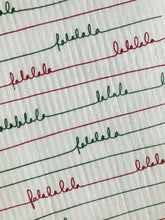 la
falalala lalalala
falalala
lala
lalalala
falalala
lala
falalala